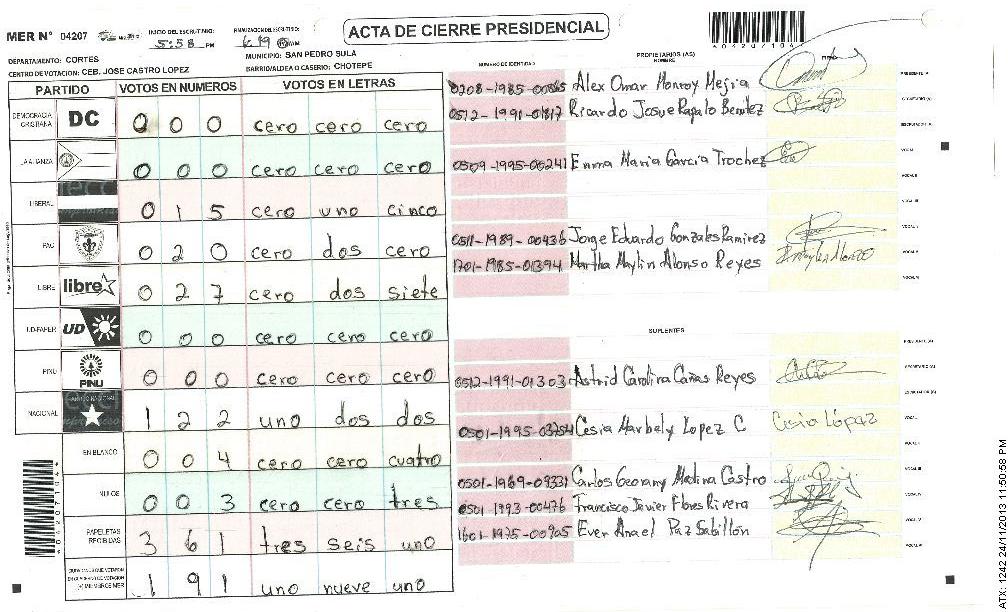 MER N° 04207
INICIO DEL ESCRUTINIO: 5:58 PM
FINALIZACION DEL ESCRUTINIO: 6:19
ACTA DE CIERRE PRESIDENCIAL
DEPARTAMENTO: CORTES
MUNICIPIO: SAN PEDRO SULA
CENTRO DE VOTACION: CEB. JOSE CASTRO LOPEZ
BARRIO/ALDEA O CASERIO: CHOTEPE
PARTIDO VOTOS EN NUMEROS VOTOS EN LETRAS
DEMOCRACIA CRISTIANA DC 0 0 0 cero cero cero
LA ALIANZA 0 0 0 cero cero cero
LIBERAL 0 1 5 cero uno cinco
PAC 0 2 0 cero dos cero
LIBRE libre 0 2 7 cero dos siete
UD-FAPER UD 0 0 0 cero cero cero
PINU PINU 0 0 0 cero cero cero
NACIONAL 1 2 2 uno dos dos
EN BLANCO 0 0 4 cero cero cuatro
NULOS 0 0 3 cero cero tres
PAPELETAS RECIBIDAS 3 6 1 tres seis uno
1 9 1 uno nueve uno
NUMERO DE IDENTIDAD
PROPIETARIOS (AS)
NOMBRE
FIRMA
0208-1985-00865 Alex Omar Monroy Mejia PRESIDENTE (A)
0512-1991-01817 Ricardo Josue Rapalo Benitez SECRETARIO (A)
ESCRUTADOR (A)
0509-1995-00241 Enma Maria Garcia Trochez VOCAL I
VOCAL II
VOCAL III
0511-1989-00436 Jorge Eduardo Gonzales Ramirez
1701-1985-01394 Martha Maylin Alonso Reyes
SUPLENTES
PRESIDENTE (A)
0512-1991-01303 Astrid Carolina Cañas Reyes SECRETARIO (A)
ESCRUTADOR (A)
0501-1995-03754 Cesia Marbely Lopez C Cesia López
0501-1969-09331 Carlos Geovany Medina Castro
0501-1993-00476 Francisco Javier Flores Rivera
1601-1975-00905 Ever Anael Paz Sabillón
ATX: 1242 24/11/2013 11:50:58 PM